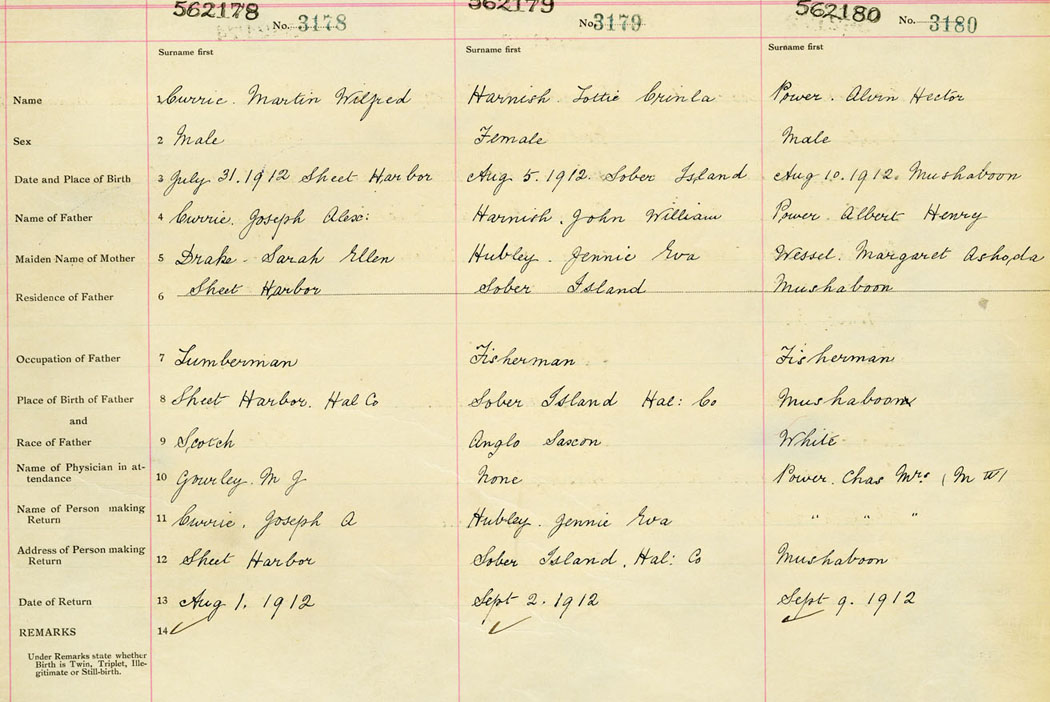 562178 562179 562180
No. 3178 No. 3179 No. 3180
Surname first Surname first Surname first
Name 1 Currie. Martin Wilfred Harnish. Lottie Crinla Power. Alvin Hector
Sex 2 Male Female Male
Date and Place of Birth 3 July 31. 1912 Sheet Harbor Aug 5. 1912. Sober Island Aug 10. 1912. Mushaboon
Name of Father 4 Currie. Joseph Alex: Harnish. John William Power. Albert Henry
Maiden Name of Mother 5 Drake - Sarah Ellen Hubley. Jennie Eva Wessel. Margaret
Residence of Father 6 Sheet Harbor Sober Island Mushaboon
Occupation of Father 7 Lumberman Fisherman Fisherman
Place of Birth of Father 8 Sheet Harbor. Hal Co Sober Island Hal: Co Mushaboom
and
Race of Father 9 Scotch Anglo Saxon White
Name of Physician in at-
tendance 10 Gourley. M J None Power. Chas Mrs. (M W)
Name of Person making
Return 11 Currie. Joseph A Hubley. Jennie Eva " " "
Address of Person making
Return 12 Sheet Harbor Sober Island. Hal: Co Mushaboon
Date of Return 13 Aug 1. 1912 Sept 2. 1912 Sept 9. 1912
REMARKS 14
Under Remarks state whether
Birth is Twin, Triplet, Ille-
gitimate or Still-birth.